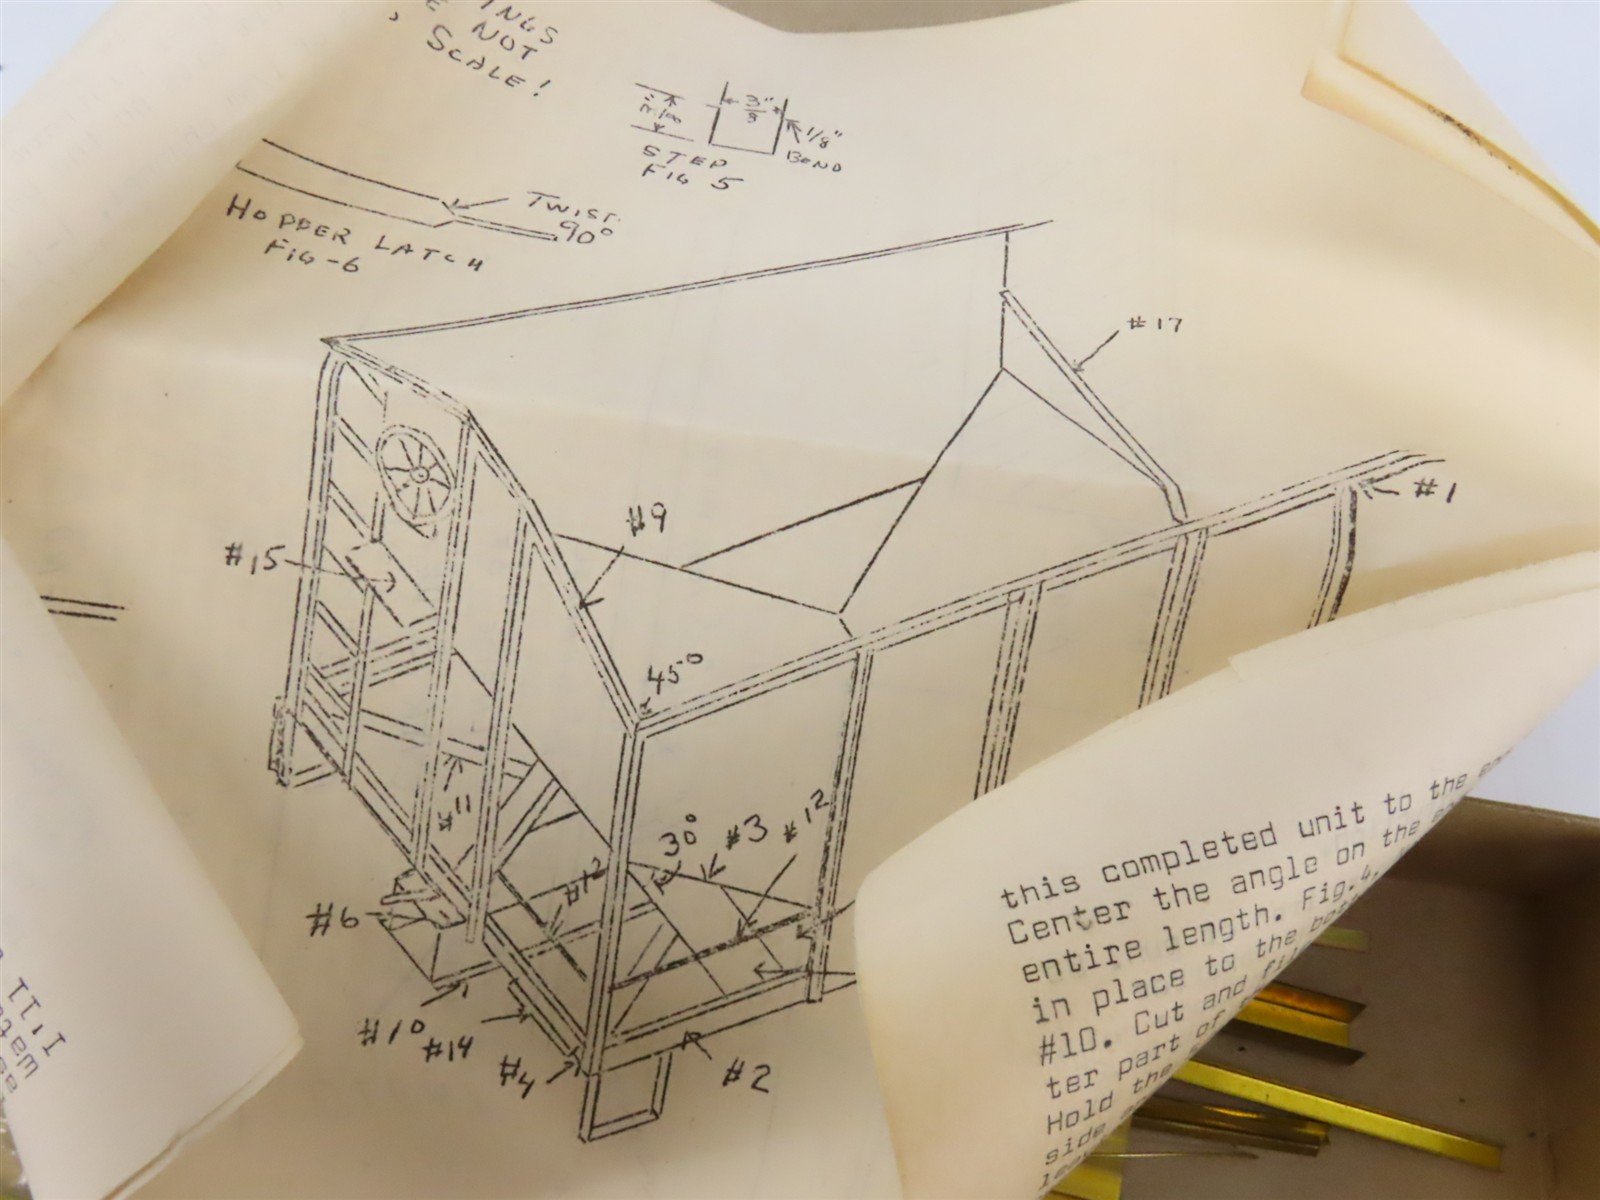 INGS
E NOT
SCALE!
3"
8
1/8"
BEND
STEP
FIG 5
TWIST
90°
HOPPER LATCH
FIG-6
#17
#1
#9
#15
45°
#11
30°
#3
#12
#12
#6
#10
#14
#4
#2
this completed unit to the
Center the angle on the
entire length. Fig.4.
in place to the
#10. Cut and
ter part of
Hold the
side
I'll